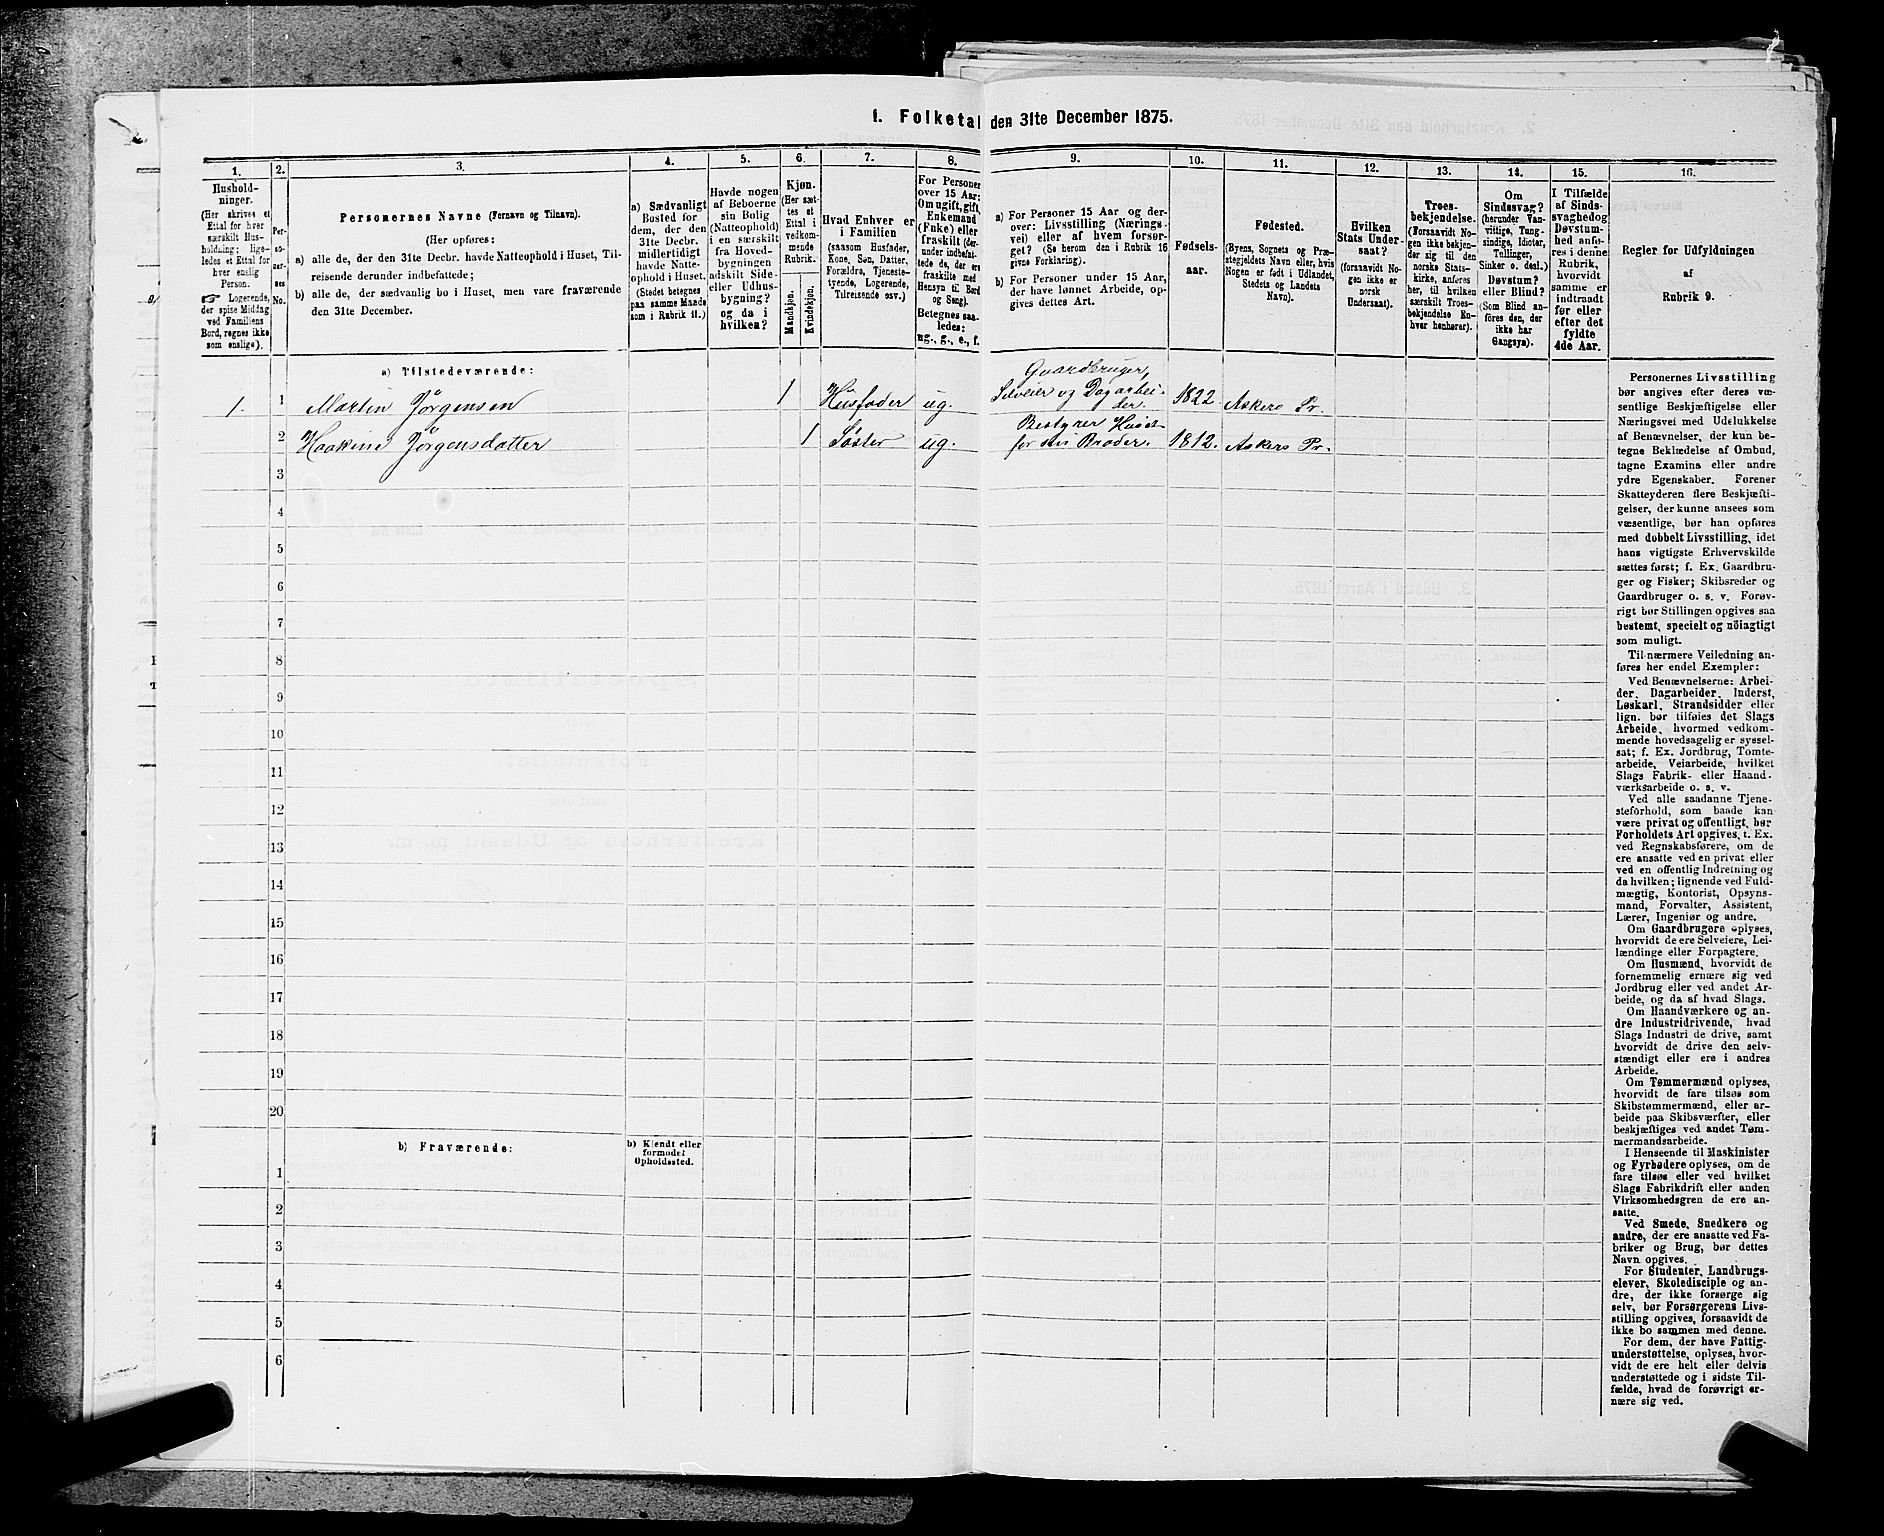 1. Folketal den 31te December 1875.
1.
2.
3.
4.
5.
6.
7.
8.
9.
10.
11.
12.
13.
14.
15.
16.
Hushold-
ninger.
(Her skrives et
Ettal for hver
særskilt Hus-
holdning; lige-
ledes et Ettal for
hver enslig
Person.
☞ Logerende,
der spise Middag
ved Familiens
Bord, regnes ikke
som enslige).
Per-
so-
ner-
nes
No.
Personernes Navne (Fornavn og Tilnavn).
(Her opføres:
a) alle de, der den 31te Decbr. havde Natteophold i Huset, Til-
reisende derunder indbefattede;
b) alle de, der sædvanlig bo i Huset, men vare fraværende
den 31te December.
a) Sædvanligt
Bosted for
dem, der den
31te Decbr.
midlertidigt
havde Natte-
ophold i Huset.
(Stedet betegnes
paa samme Maade
som i Rubrik 11.)
Havde nogen
af Beboerne
sin Bolig
(Natteophold)
i en særskilt
fra Hoved-
bygningen
adskilt Side-
eller Udhus-
bygning?
og da i
hvilken?
Kjøn.
(Her sæt-
tes et
Ettal i
vedkom-
mende
Rubrik.
Mandkjøn.
Kvindekjøn.
Hvad Enhver er
i Familien
(saasom Husfader,
Kone, Søn, Datter,
Forældre, Tjeneste-
tyende, Logerende,
Tilreisende osv.)
For Personer
over 15 Aar:
Om ugift, gift,
Enkemand
(Enke) eller
fraskilt (der-
under indbefat-
tede de, der ere
fraskilte med
Hensyn til Bord
og Seng).
Betegnes saa-
ledes:
ug., g., e., f.
a) For Personer 15 Aar og der-
over: Livsstilling (Nærings-
vei) eller af hvem forsør-
get? (Se herom den i Rubrik 16
givne Forklaring).
b) For Personer under 15 Aar,
der have lønnet Arbeide, op-
gives dettes Art.
Fødsels-
aar.
Fødested.
(Byens, Sognets og Præ-
stegjeldets Navn eller, hvis
Nogen er født i Udlandet,
Stedets og Landets
Navn).
Hvilken
Stats Under-
saat?
(forsaavidt No-
gen ikke er
norsk
Undersaat).
Troes-
bekjendelse.
(Forsaavidt No-
gen ikke bekjen-
der sig til den
norske Stats-
kirke, anføres
her, til hvilken
særskilt Troes-
bekjendelse En-
hver henhører).
Om
Sindssvag?
(herunder Van-
vittige, Tung-
sindige, Idioter,
Tullinger,
Sinker o. desl.)
Døvstum?
eller Blind?
(Som Blind an-
føres den, der
ikke har
Gangsyn).
I Tilfælde
af Sinds-
svaghed og
Døvstum-
hed anfø-
res i denne
Rubrik,
hvorvidt
samme er
indtraadt
før eller
efter det
fyldte
4de Aar.
Regler for Udfyldningen
af
Rubrik 9.
a) Tilstedeværende:
1. 1 Martin Jørgensen 1 Husfader ug. Gaardbruger, Selveier og Dagarbeider. 1822. Askers Pr.
2 Haakine Jørgensdatter 1 Søster ug. Bestyrer Huset for sin Broder. 1812. Askers Pr.
3
4
5
6
7
8
9
10
11
12
13
14
15
16
17
18
19
20
b) Fraværende:
b) Kjendt eller
formodet
Opholdssted.
1
2
3
4
5
6
Personernes Livsstilling
bør angives efter deres væ-
sentlige Beskjæftigelse eller
Næringsvei med Udelukkelse
af Benævnelser, der kun be-
tegne Beklædelse af Ombud,
tagne Examina eller andre
ydre Egenskaber. Forener
Skatteyderen flere Beskjæfti-
gelser, der kunne ansees som
væsentlige, bør han opføres
med dobbelt Livsstilling, idet
hans vigtigste Erhvervskilde
sættes først; f. Ex. Gaardbru-
ger og Fisker; Skibsreder og
Gaardbruger o. s. v. Forøv-
rigt bør Stillingen opgives saa
bestemt, specielt og nöiagtigt
som muligt.
Til nærmere Veiledning an-
føres her endel Exempler:
Ved Benævnelserne: Arbei-
der, Dagarbeider, Inderst,
Løskarl, Strandsidder eller
lign. bør tilføies det Slags
Arbeide, hvormed vedkom-
mende hovedsagelig er syssel-
sat; f. Ex. Jordbrug, Tomte-
arbeide, Veiarbeide, hvilket
Slags Fabrik- eller Haand-
værksarbeide o. s. v.
Ved alle saadanne Tjene-
steforhold, som baade kan
være privat og offentligt, bør
Forholdets Art opgives, t. Ex.
ved Regnskabsførere, om de
ere ansatte ved en privat eller
ved en offentlig Indretning og
da hvilken; lignende ved Fuld-
mægtig, Kontorist, Opsyns-
mand, Forvalter, Assistent,
Lærer, Ingeniør og andre.
Om Gaardbrugere oplyses,
hvorvidt de ere Selveiere, Lei-
lændinge eller Forpagtere.
Om Husmænd, hvorvidt de
fornemmelig ernære sig ved
Jordbrug eller ved andet Ar-
beide, og da af hvad Slags.
Om Haandværkere og an-
dre Industridrivende, hvad
Slags Industri de drive, samt
hvorvidt de drive den selv-
stændigt eller ere i andres
Arbeide.
Om Tømmermænd oplyses,
hvorvidt de fare tilsøs som
Skibstømmermænd, eller ar-
beide paa Skibsværfter, eller
beskjæftiges ved andet Tøm-
mermandsarbeide.
I Henseende til Maskinister
og Fyrbødere oplyses, om de
fare tilsøs eller ved hvilket
Slags Fabrikdrift eller anden
Virksomhedsgren de ere an-
satte.
Ved Smede, Snedkere og
andre, der ere ansatte ved Fa-
briker og Brug, bør dettes
Navn opgives.
For Studenter, Landbrugs-
elever, Skoledisciple og an-
dre, der ikke forsørge sig
selv, bør Forsørgerens Livs-
stilling opgives, forsaavidt de
ikke bo sammen med denne.
For dem, der have Fattig-
understøttelse, oplyses, hvor-
vidt de ere helt eller delvis
understøttede og i sidste Til-
fælde, hvad de forøvrigt er-
nære sig ved.